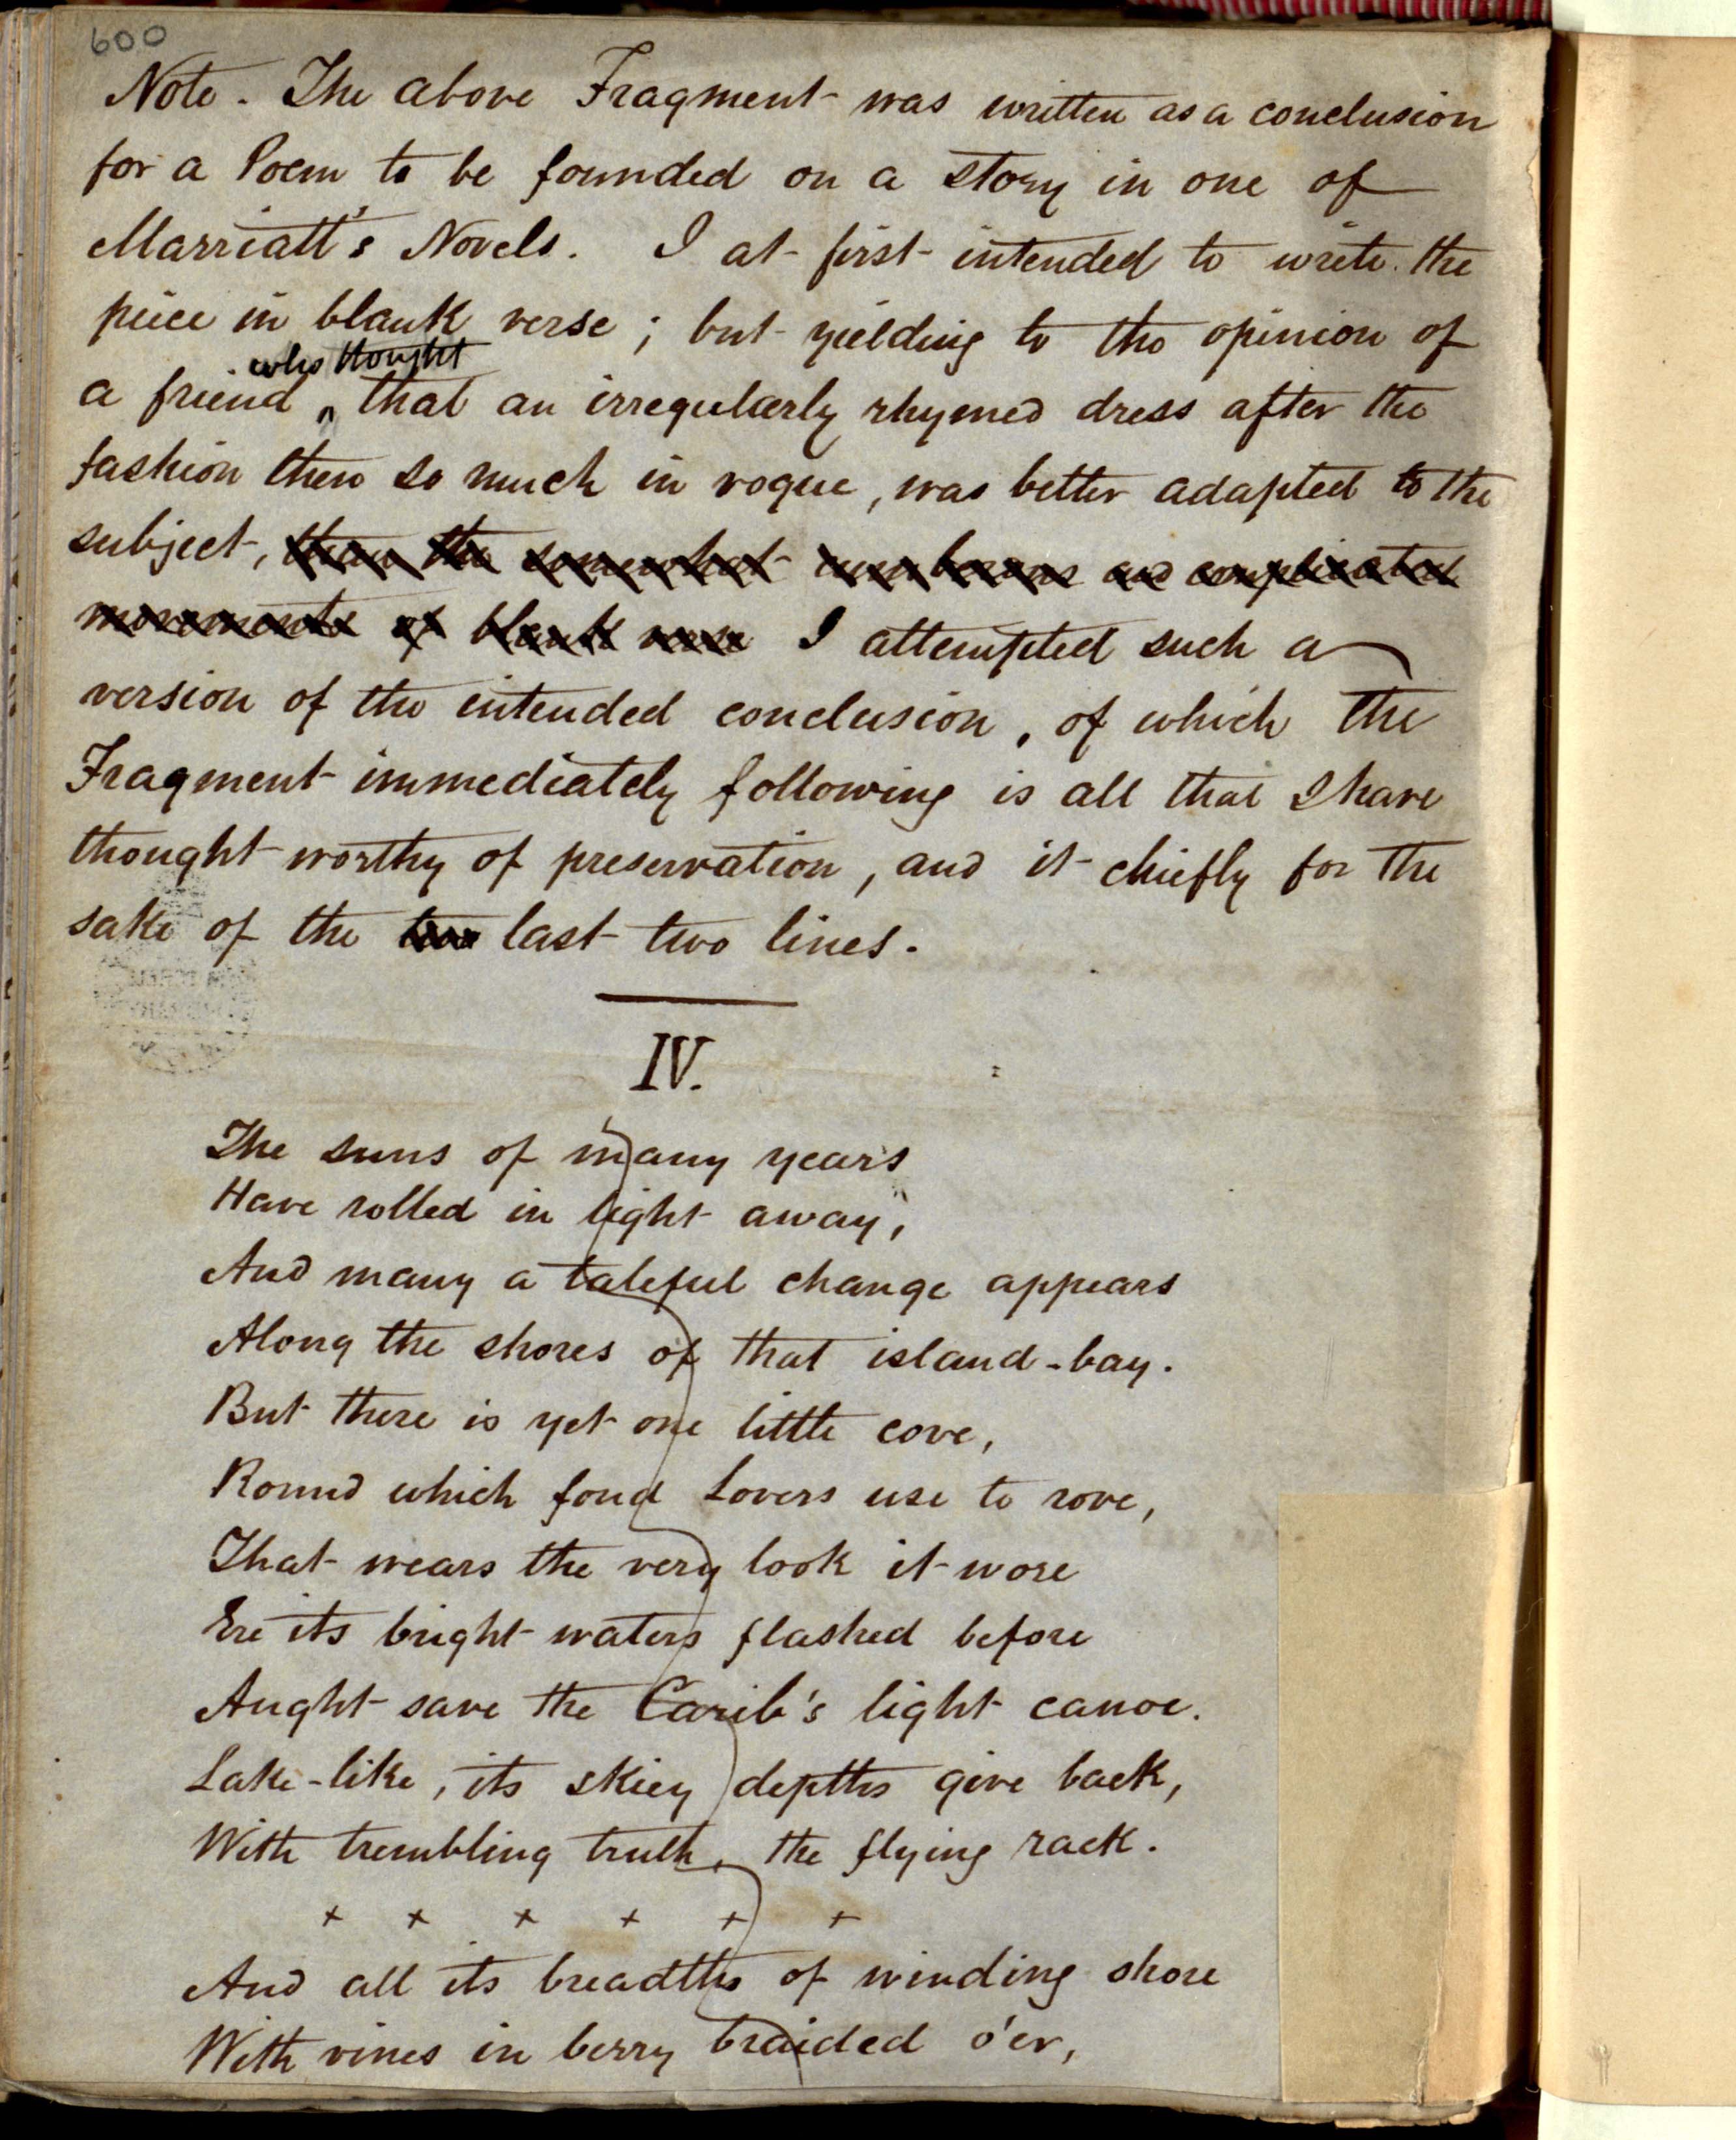 600
Note. The above Fragment was written as a conclusion
for a Poem to be founded on a story in one of
Marriatt's Novels. I at first intended to write the
peice in blank verse; but yielding to the opinion of
who thought
a friend ^ that an irregularly rhymed dress after the
fashion then so much in vogue, was better adapted to the
subject, than the somewhat cumbrous and complicated
movements of blank verse I attempted such a
version of the intended conclusion, of which the
Fragment immediately following is all that I have
thought worthy of preservation, and it chiefly for the
sake of the two last two lines.
IV.
The suns of many years
Have rolled in light away,
And many a taleful change appears
Along the shores of that island-bay.
But there is yet one little cove,
Round which fond Lovers use to rove,
That wears the very look it wore
Ere its bright waters flashed before
Aught save the Carib's light canoe.
Lake-like, its skiey depths give back,
With trembling truth, the flying rack.
+ + + + + +
And all its breadths of winding shore
With vines in berry braided o'er,